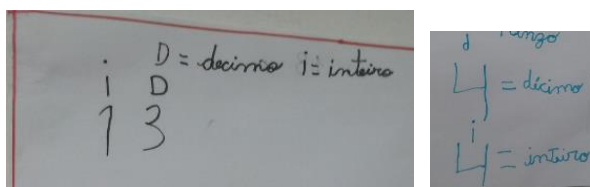 D = decimo i = inteiro
i D
1 3
d
4 = décimo
i
4 = inteiro